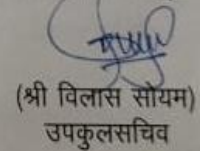 (श्री विलास सोयम)
उपकुलसचिव